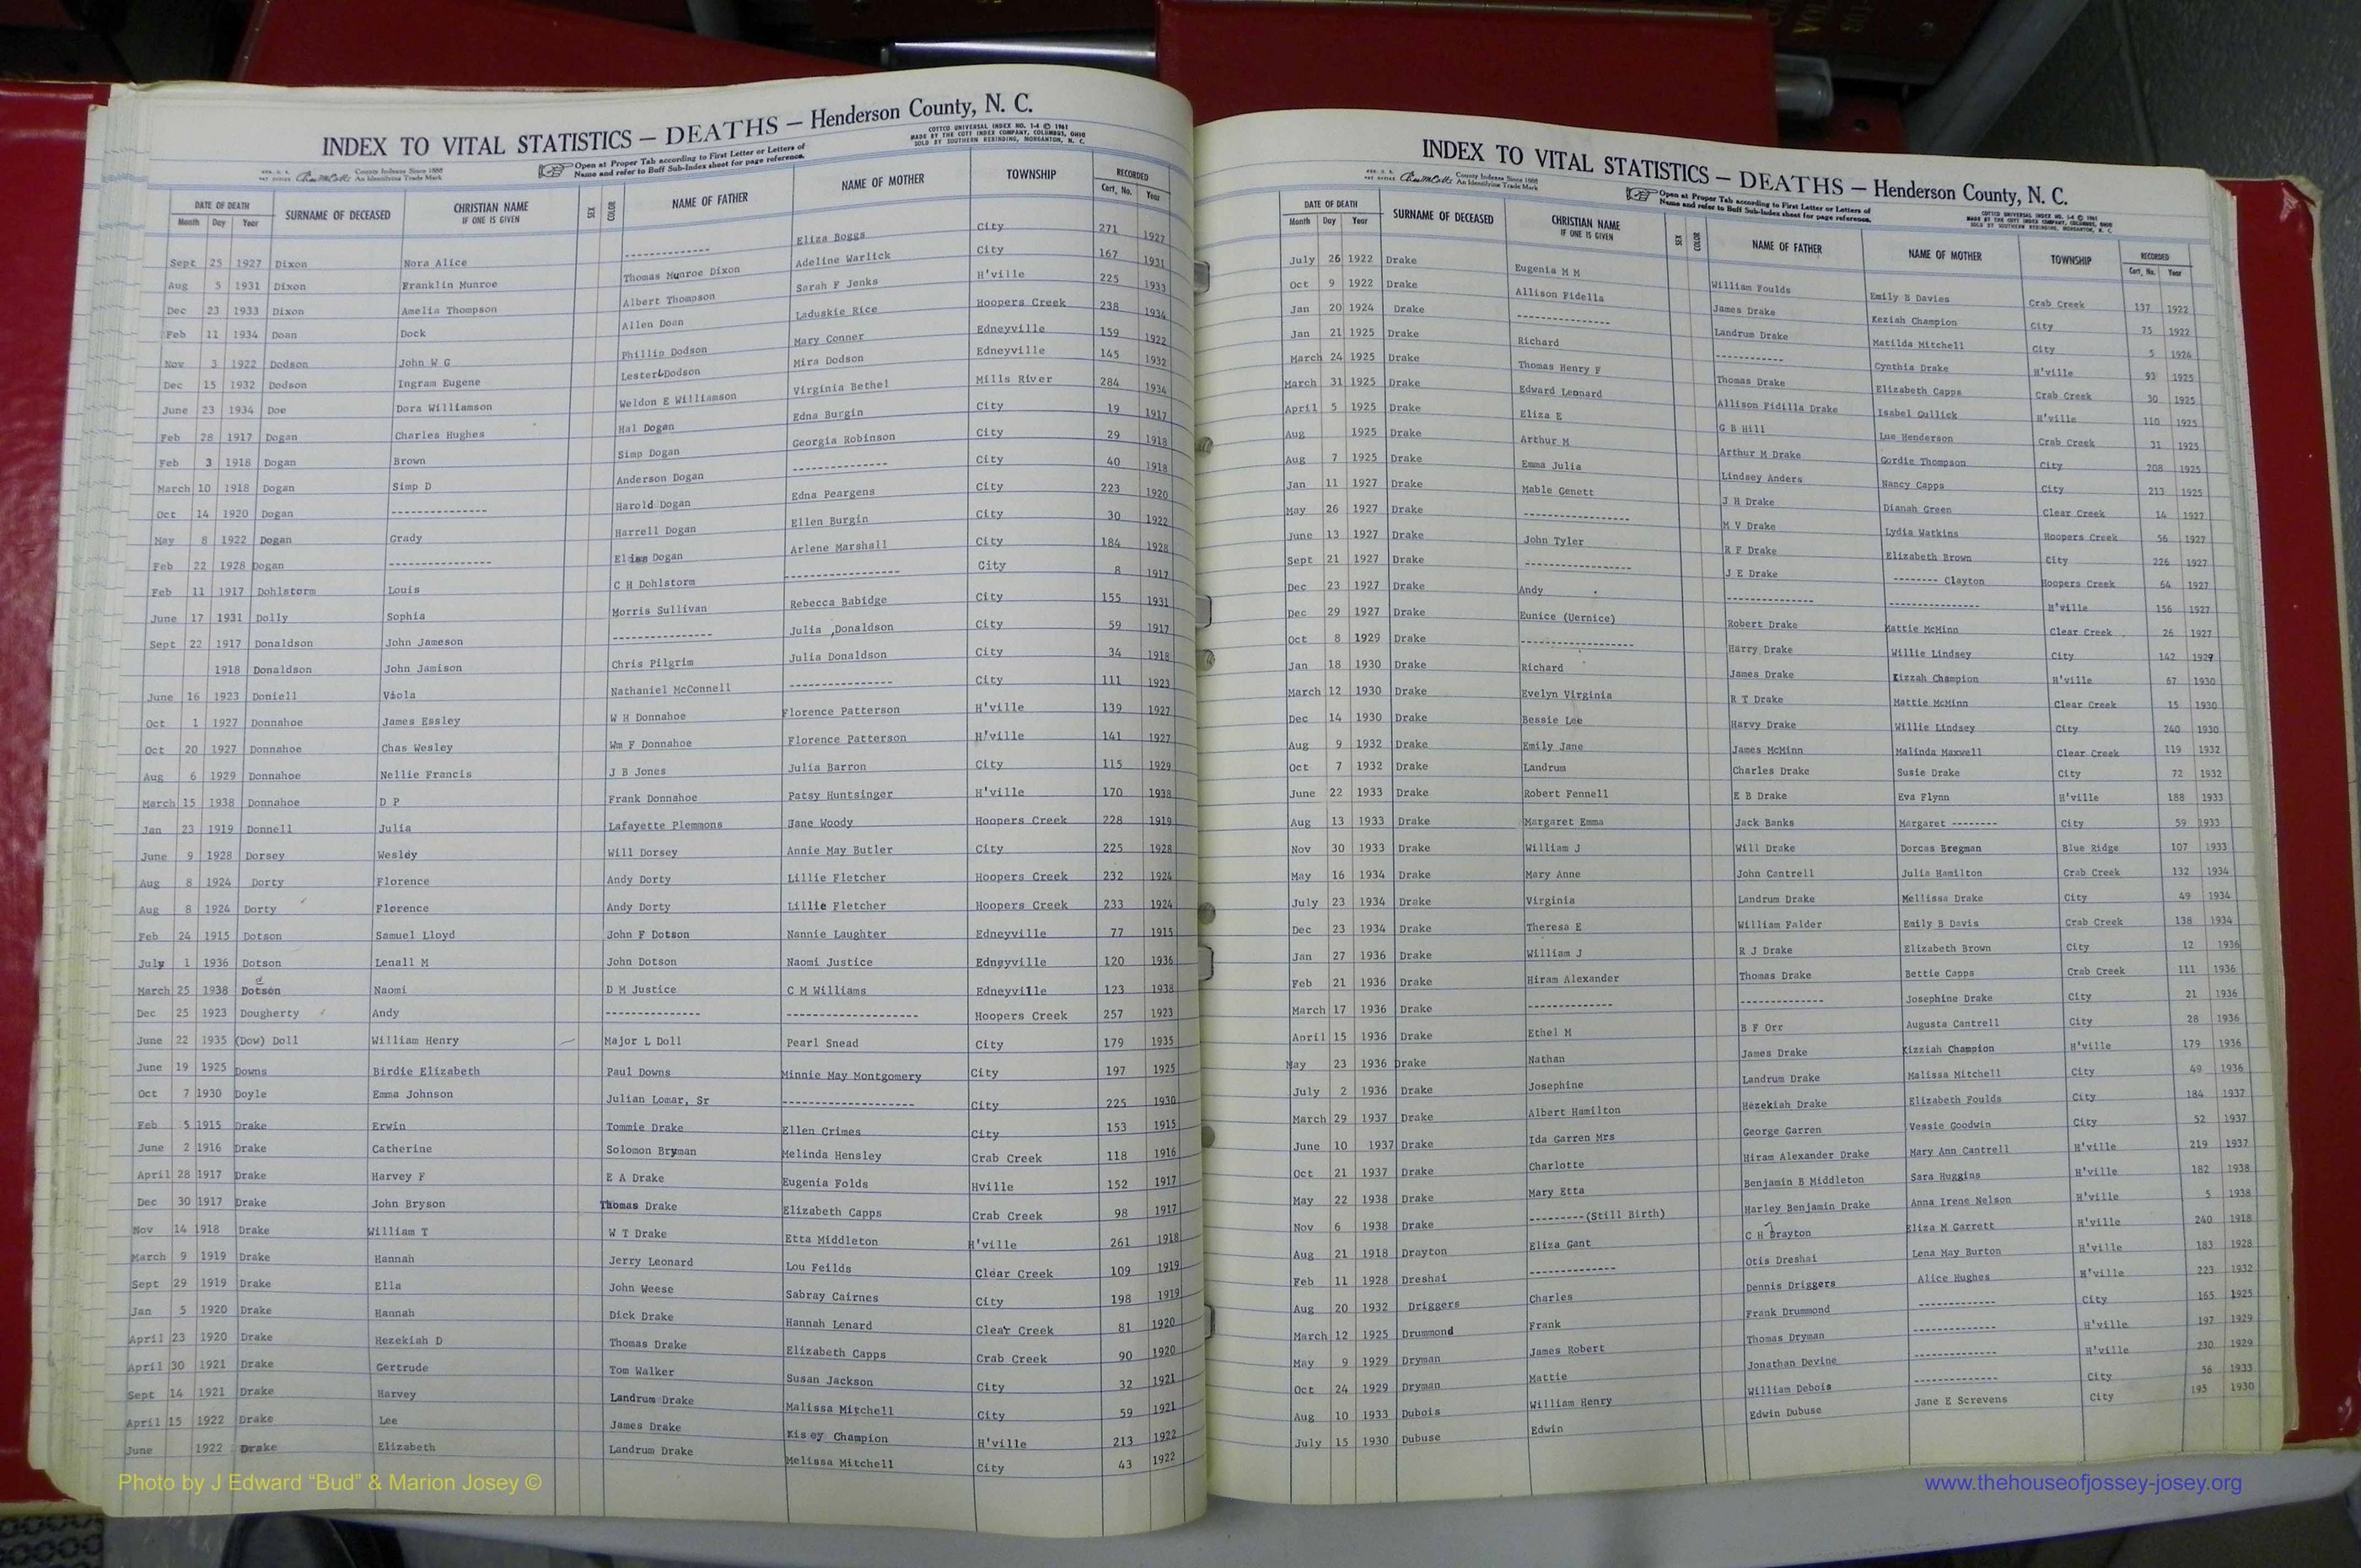 INDEX TO VITAL STATISTICS – DEATHS – Henderson County, N. C.
COTTCO UNIVERSAL INDEX NO. 1-4 © 1961
MADE BY THE COTT INDEX COMPANY, COLUMBUS, OHIO
SOLD BY SOUTHERN REBINDING, MORGANTON, N. C.
County Indexes Since 1888
An Identifying Trade Mark
Open at Proper Tab according to First Letter or Letters of
Name and refer to Buff Sub-Index sheet for page reference.
DATE OF DEATH SURNAME OF DECEASED CHRISTIAN NAME IF ONE IS GIVEN SEX COLOR NAME OF FATHER NAME OF MOTHER TOWNSHIP RECORDED
Month Day Year Cert. No. Year
Sept 25 1927 Dixon Nora Alice ------------ Eliza Boggs City 271 1927
Aug 5 1931 Dixon Franklin Munroe Thomas Munroe Dixon Adeline Warlick City 167 1931
Dec 23 1933 Dixon Amelia Thompson Albert Thompson Sarah F Jenks H'ville 225 1933
Feb 11 1934 Doan Dock Allen Doan Laduskie Rice Hoopers Creek 238 1934
Nov 3 1922 Dodson John W G Phillip Dodson Mary Conner Edneyville 159 1922
Dec 15 1932 Dodson Ingram Eugene Lester L Dodson Mira Dodson Edneyville 145 1932
June 23 1934 Doe Dora Williamson Weldon E Williamson Virginia Bethel Mills River 284 1934
Feb 28 1917 Dogan Charles Hughes Hal Dogan Edna Burgin City 19 1917
Feb 3 1918 Dogan Brown Simp Dogan Georgia Robinson City 29 1918
March 10 1918 Dogan Simp D Anderson Dogan ------------ City 40 1918
Oct 14 1920 Dogan ------------ Harold Dogan Edna Peargens City 223 1920
May 8 1922 Dogan Grady Harrell Dogan Ellen Burgin City 30 1922
Feb 22 1928 Dogan ------------ Elias Dogan Arlene Marshall City 184 1928
Feb 11 1917 Dohlstorm Louis C H Dohlstorm ------------ City 8 1917
June 17 1931 Dolly Sophia Morris Sullivan Rebecca Babidge City 155 1931
Sept 22 1917 Donaldson John Jameson ------------ Julia ,Donaldson City 59 1917
1918 Donaldson John Jamison Chris Pilgrim Julia Donaldson City 34 1918
June 16 1923 Doniell Viola Nathaniel McConnell ------------ City 111 1923
Oct 1 1927 Donnahoe James Essley W H Donnahoe Florence Patterson H'ville 139 1927
Oct 20 1927 Donnahoe Chas Wesley Wm F Donnahoe Florence Patterson H'ville 141 1927
Aug 6 1929 Donnahoe Nellie Francis J B Jones Julia Barron City 115 1929
March 15 1938 Donnahoe D P Frank Donnahoe Patsy Huntsinger H'ville 170 1938
Jan 23 1919 Donnell Julia Lafayette Plemmons Jane Woody Hoopers Creek 228 1919
June 9 1928 Dorsey Wesley Will Dorsey Annie May Butler City 225 1928
Aug 8 1924 Dorty Florence Andy Dorty Lillie Fletcher Hoopers Creek 232 1924
Aug 8 1924 Dorty Florence Andy Dorty Lillie Fletcher Hoopers Creek 233 1924
Feb 24 1915 Dotson Samuel Lloyd John F Dotson Nannie Laughter Edneyville 77 1915
July 1 1936 Dotson Lenall M John Dotson Naomi Justice Edneyville 120 1936
d
March 25 1938 Dotson Naomi D M Justice C M Williams Edneyville 123 1938
Dec 25 1923 Dougherty Andy ------------ ---------------- Hoopers Creek 257 1923
June 22 1935 (Dow) Doll William Henry Major L Doll Pearl Snead City 179 1935
June 19 1925 Downs Birdie Elizabeth Paul Downs Minnie May Montgomery City 197 1925
Oct 7 1930 Doyle Emma Johnson Julian Lomar, Sr ---------------- City 225 1930
Feb 5 1915 Drake Erwin Tommie Drake Ellen Crimes City 153 1915
June 2 1916 Drake Catherine Solomon Bryman Melinda Hensley Crab Creek 118 1916
April 28 1917 Drake Harvey F E A Drake Eugenia Folds Hville 152 1917
Dec 30 1917 Drake John Bryson Thomas Drake Elizabeth Capps Crab Creek 98 1917
Nov 14 1918 Drake William T W T Drake Etta Middleton H'ville 261 1918
March 9 1919 Drake Hannah Jerry Leonard Lou Feilds Clear Creek 109 1919
Sept 29 1919 Drake Ella John Weese Sabray Cairnes City 198 1919
Jan 5 1920 Drake Hannah Dick Drake Hannah Lenard Clear Creek 81 1920
April 23 1920 Drake Hezekiah D Thomas Drake Elizabeth Capps Crab Creek 90 1920
April 30 1921 Drake Gertrude Tom Walker Susan Jackson City 32 1921
Sept 14 1921 Drake Harvey Landrum Drake Malissa Mitchell City 59 1921
April 15 1922 Drake Lee James Drake Kisey Champion H'ville 213 1922
June 1922 Drake Elizabeth Landrum Drake Melissa Mitchell City 43 1922
INDEX TO VITAL STATISTICS – DEATHS – Henderson County, N. C.
COTTCO UNIVERSAL INDEX NO. 1-4 © 1961
MADE BY THE COTT INDEX COMPANY, COLUMBUS, OHIO
SOLD BY SOUTHERN REBINDING, MORGANTON, N. C.
County Indexes Since 1888
An Identifying Trade Mark
Open at Proper Tab according to First Letter or Letters of
Name and refer to Buff Sub-Index sheet for page reference.
DATE OF DEATH SURNAME OF DECEASED CHRISTIAN NAME IF ONE IS GIVEN SEX COLOR NAME OF FATHER NAME OF MOTHER TOWNSHIP RECORDED
Month Day Year Cert. No. Year
July 26 1922 Drake Eugenia M M William Foulds Emily B Davies Crab Creek 137 1922
Oct 9 1922 Drake Allison Fidella James Drake Keziah Champion City 75 1922
Jan 20 1924 Drake ------------ Landrum Drake Matilda Mitchell City 5 1924
Jan 21 1925 Drake Richard ------------ Cynthia Drake H'ville 93 1925
March 24 1925 Drake Thomas Henry F Thomas Drake Elizabeth Capps Crab Creek 30 1925
March 31 1925 Drake Edward Leonard Allison Fidilla Drake Isabel Gullick H'ville 110 1925
April 5 1925 Drake Eliza E G B Hill Lue Henderson Crab Creek 31 1925
Aug 1925 Drake Arthur M Arthur M Drake Gordie Thompson City 208 1925
Aug 7 1925 Drake Emma Julia Lindsey Anders Nancy Capps City 213 1925
Jan 11 1927 Drake Mable Genett J H Drake Dianah Green Clear Creek 14 1927
May 26 1927 Drake ------------ M V Drake Lydia Watkins Hoopers Creek 56 1927
June 13 1927 Drake John Tyler R F Drake Elizabeth Brown City 226 1927
Sept 21 1927 Drake ------------ J E Drake -------- Clayton Hoopers Creek 64 1927
Dec 23 1927 Drake Andy ------------ ------------ H'ville 156 1927
Dec 29 1927 Drake Eunice (Uernice) Robert Drake Mattie McMinn Clear Creek 26 1927
Oct 8 1929 Drake ------------ Harry Drake Willie Lindsey City 142 1929
Jan 18 1930 Drake Richard James Drake Kizzah Champion H'ville 67 1930
March 12 1930 Drake Evelyn Virginia R T Drake Mattie McMinn Clear Creek 15 1930
Dec 14 1930 Drake Bessie Lee Harvy Drake Willie Lindsey City 240 1930
Aug 9 1932 Drake Emily Jane James McMinn Malinda Maxwell Clear Creek 119 1932
Oct 7 1932 Drake Landrum Charles Drake Susie Drake City 72 1932
June 22 1933 Drake Robert Fennell E B Drake Eva Flynn H'ville 188 1933
Aug 13 1933 Drake Margaret Emma Jack Banks Margaret -------- City 59 1933
Nov 30 1933 Drake William J Will Drake Dorcas Bregman Blue Ridge 107 1933
May 16 1934 Drake Mary Anne John Cantrell Julia Hamilton Crab Creek 132 1934
July 23 1934 Drake Virginia Landrum Drake Mellissa Drake City 49 1934
Dec 23 1934 Drake Theresa E William Falder Emily B Davis Crab Creek 138 1934
Jan 27 1936 Drake William J R J Drake Elizabeth Brown City 12 1936
Feb 21 1936 Drake Hiram Alexander Thomas Drake Bettie Capps Crab Creek 111 1936
March 17 1936 Drake ------------ ------------ Josephine Drake City 21 1936
April 15 1936 Drake Ethel M B F Orr Augusta Cantrell City 28 1936
May 23 1936 Drake Nathan James Drake Kizziah Champion H'ville 179 1936
July 2 1936 Drake Josephine Landrum Drake Malissa Mitchell City 49 1936
March 29 1937 Drake Albert Hamilton Hezekiah Drake Elizabeth Foulds City 184 1937
June 10 1937 Drake Ida Garren Mrs George Garren Vessie Goodwin City 52 1937
Oct 21 1937 Drake Charlotte Hiram Alexander Drake Mary Ann Cantrell H'ville 219 1937
May 22 1938 Drake Mary Etta Benjamin B Middleton Sara Huggins H'ville 182 1938
Nov 6 1938 Drake ---------(Still Birth) Harley Benjamin Drake Anna Irene Nelson H'ville 5 1938
Aug 21 1918 Drayton Eliza Gant C H Drayton Eliza M Garrett H'ville 240 1918
Feb 11 1928 Dreshai ------------ Otis Dreshai Lena May Burton H'ville 183 1928
Aug 20 1932 Driggers Charles Dennis Driggers Alice Hughes H'ville 223 1932
March 12 1925 Drummond Frank Frank Drummond ------------ City 165 1925
May 9 1929 Dryman James Robert Thomas Dryman ------------ H'ville 197 1929
Oct 24 1929 Dryman Mattie Jonathan Devine ------------ H'ville 230 1929
Aug 10 1933 Dubois William Henry William Debois ------------ City 56 1933
July 15 1930 Dubuse Edwin Edwin Dubuse Jane E Screvens City 195 1930
Photo by J Edward “Bud” & Marion Josey ©
www.thehouseofjossey-josey.org